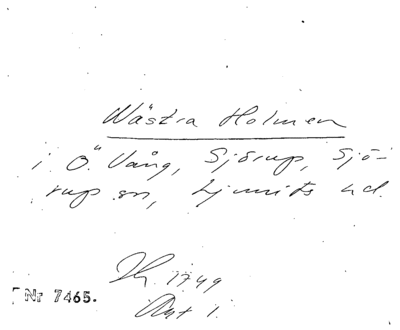 Wästra Holmen
i Ö. Vång, Sjörup, Sjö-
rup sn, Ljunits hd.
1749
Akt 1.
Nr 7465.